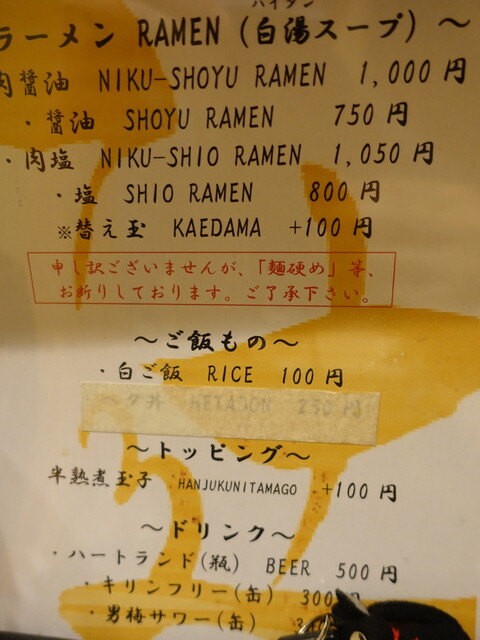 ラーメン RAMEN (白湯スープ) ～
パイタン
肉醤油 NIKU-SHOYU RAMEN 1,000 円
・醤油 SHOYU RAMEN 750 円
・肉塩 NIKU-SHIO RAMEN 1,050 円
・塩 SHIO RAMEN 800 円
※替え玉 KAEDAMA +100 円
申し訳ございませんが、「麺硬め」等、
お断りしております。ご了承下さい。
～ご飯もの～
・白ご飯 RICE 100 円
ヘタ丼 HETADON 250 円
～トッピング～
半熟煮玉子 HANJUKUNITAMAGO +100 円
～ドリンク～
・ハートランド(瓶) BEER 500 円
・キリンフリー(缶) 300
・男梅サワー(缶)